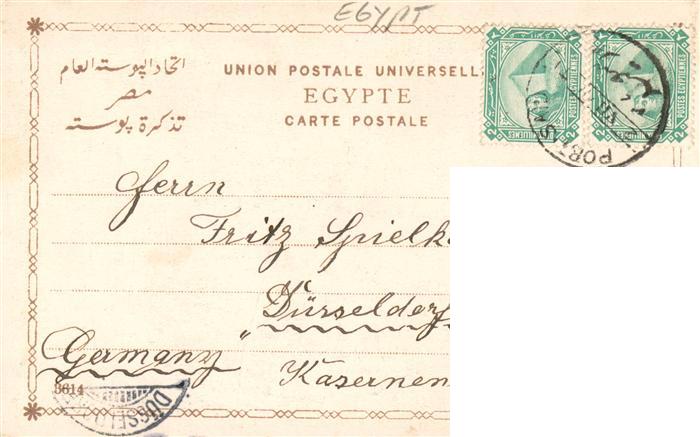 EGYPT
اتحاد البوسته العام
مصر
تذكرة بوسته
UNION POSTALE UNIVERSELL
EGYPTE
CARTE POSTALE
POSTES EGYPTIENNES
2 MILLIEMES 2
PORT SAID
Herrn
Fritz Spielk
Dürseldorf
Germany
Kasernen
3614
DÜSSELD